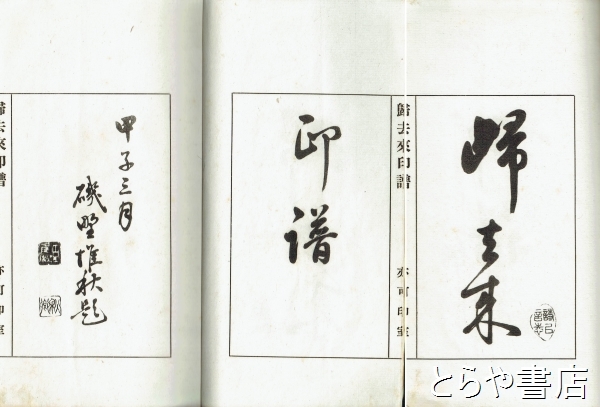 歸去来
歸去來印譜
亦可印室
印譜
甲子三月
磯野惟秋題
歸去來印譜
亦可印室
とらや書店